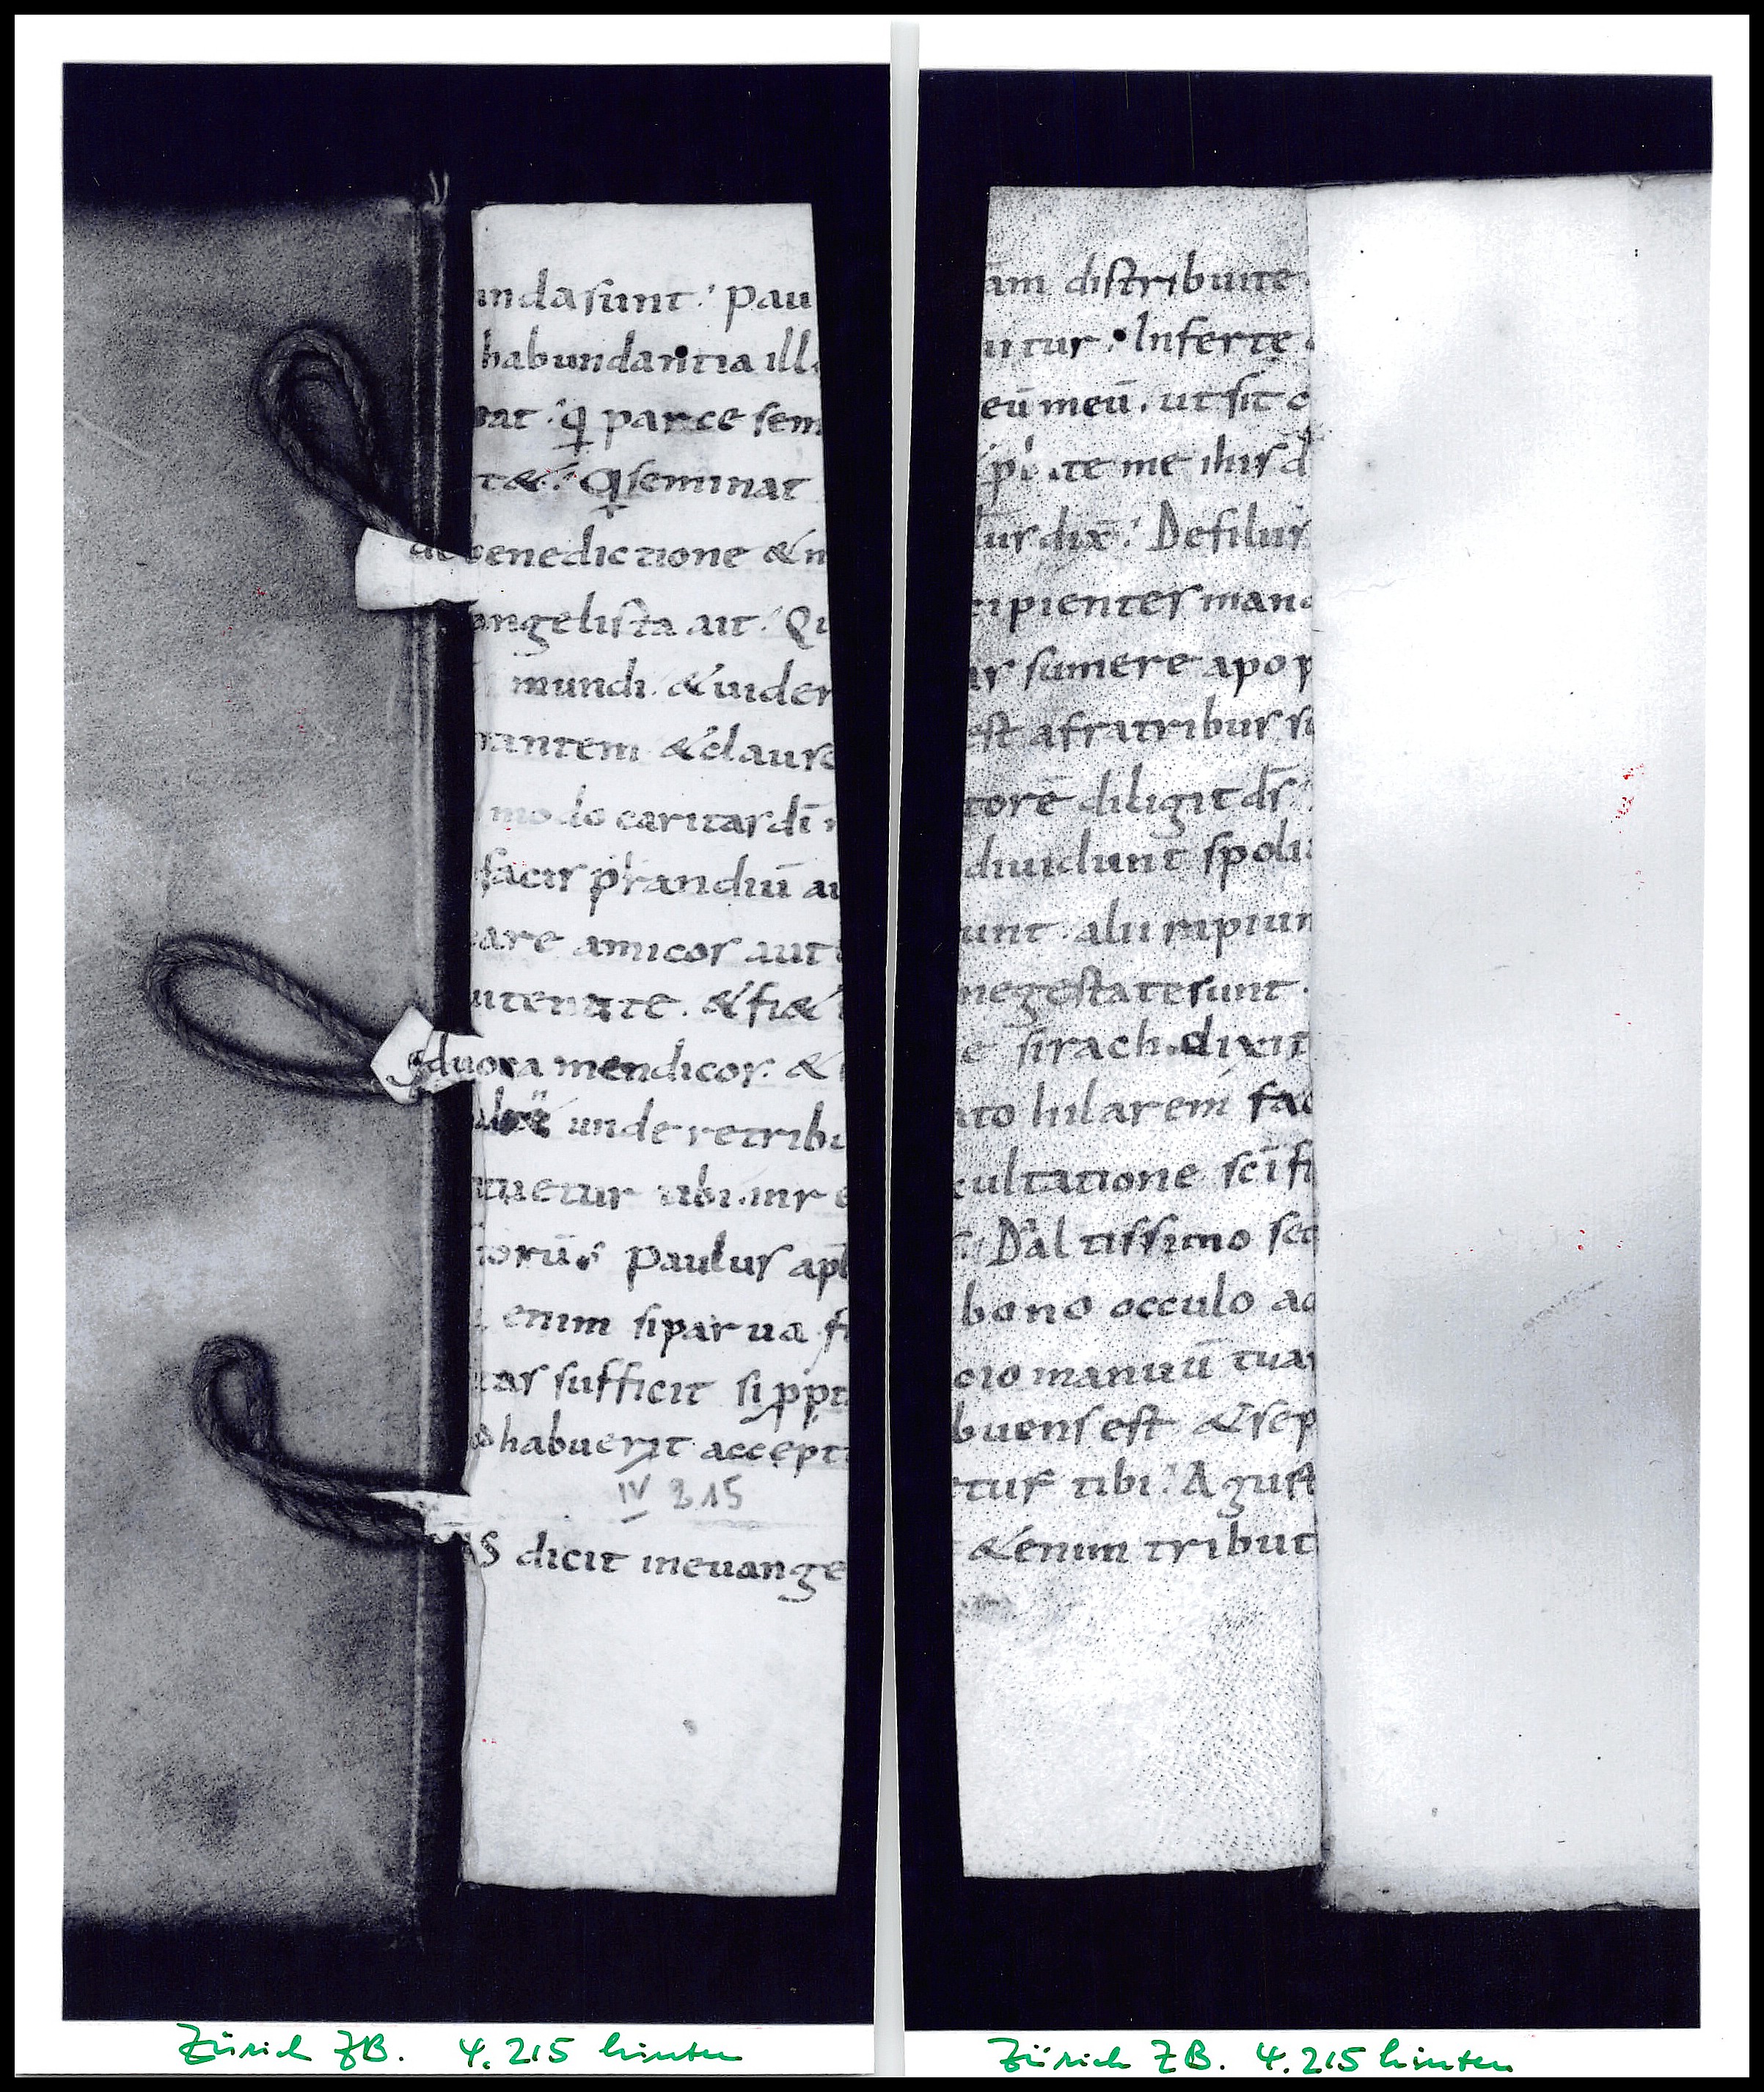 undasunt. Pau
habundantia ill
bat. q parce sem
t&. Q seminat
de benedictione & m
angelista ait. Qi
mundi. & uider
rantem & claus
modo caritas dī
facis prandiū au
care amicos aut
uitent te. & fi&
S duoca mendicos. &
unde retribu
tuetur tibi. inr e
torū. Paulus apl
enim si parua fi
tas sufficit si ppt
habuerit accept
IV 215
AS dicit ineuange
am distribuite
itur. Inferte
eū meū. ut sit c
te me ihus d
tus dix. De filiis
cipientes mano
is sumere apo p
est afratribus su
torē diligit ds
diuidunt spolia
unt. alii rapiun
negestate sunt.
e sirach. dixit
ato hilarem fac
xultatione scifi
Da altissimo sec
bono occulo ad
cio manuū tuar
buens est & sep
tur tibi. Agust
& enim tribut
Zürich ZB. 4.215 hinten
Zürich ZB. 4.215 hinten